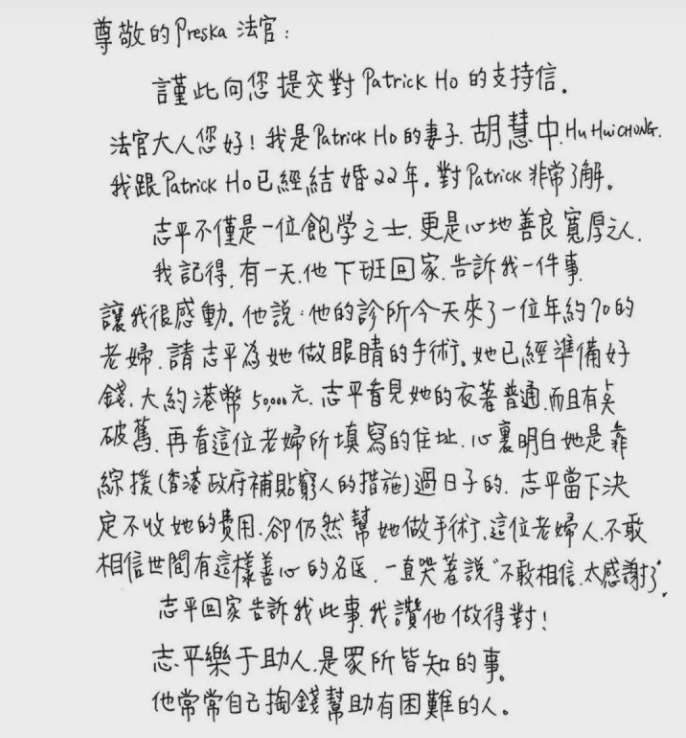 尊敬的Preska 法官：
謹此向您提交對 Patrick Ho 的支持信。
法官大人您好！我是Patrick Ho 的妻子.胡慧中.Hu HuiCHONG.
我跟Patrick Ho已經結婚22年。對Patrick 非常了解。
志平不僅是一位飽學之士.更是心地善良寬厚之人.
我記得.有一天.他下班回家.告訴我一件事.
讓我很感動。他說：他的診所今天來了一位年約70的
老婦.請志平為她做眼睛的手術。她已經準備好
錢.大約港幣50,000元.志平看見她的衣著普通.而且有点
破舊.再看這位老婦所填寫的住址.心裏明白她是靠
綜援(香港政府補貼窮人的措施)過日子的.志平當下決
定不收她的費用.卻仍然幫她做手術.這位老婦人.不敢
相信世間有這樣善心的名医.一直哭著說"不敢相信.太感謝了".
志平回家告訴我此事.我讚他做得對！
志平樂于助人.是眾所皆知的事。
他常常自己掏錢幫助有困難的人。